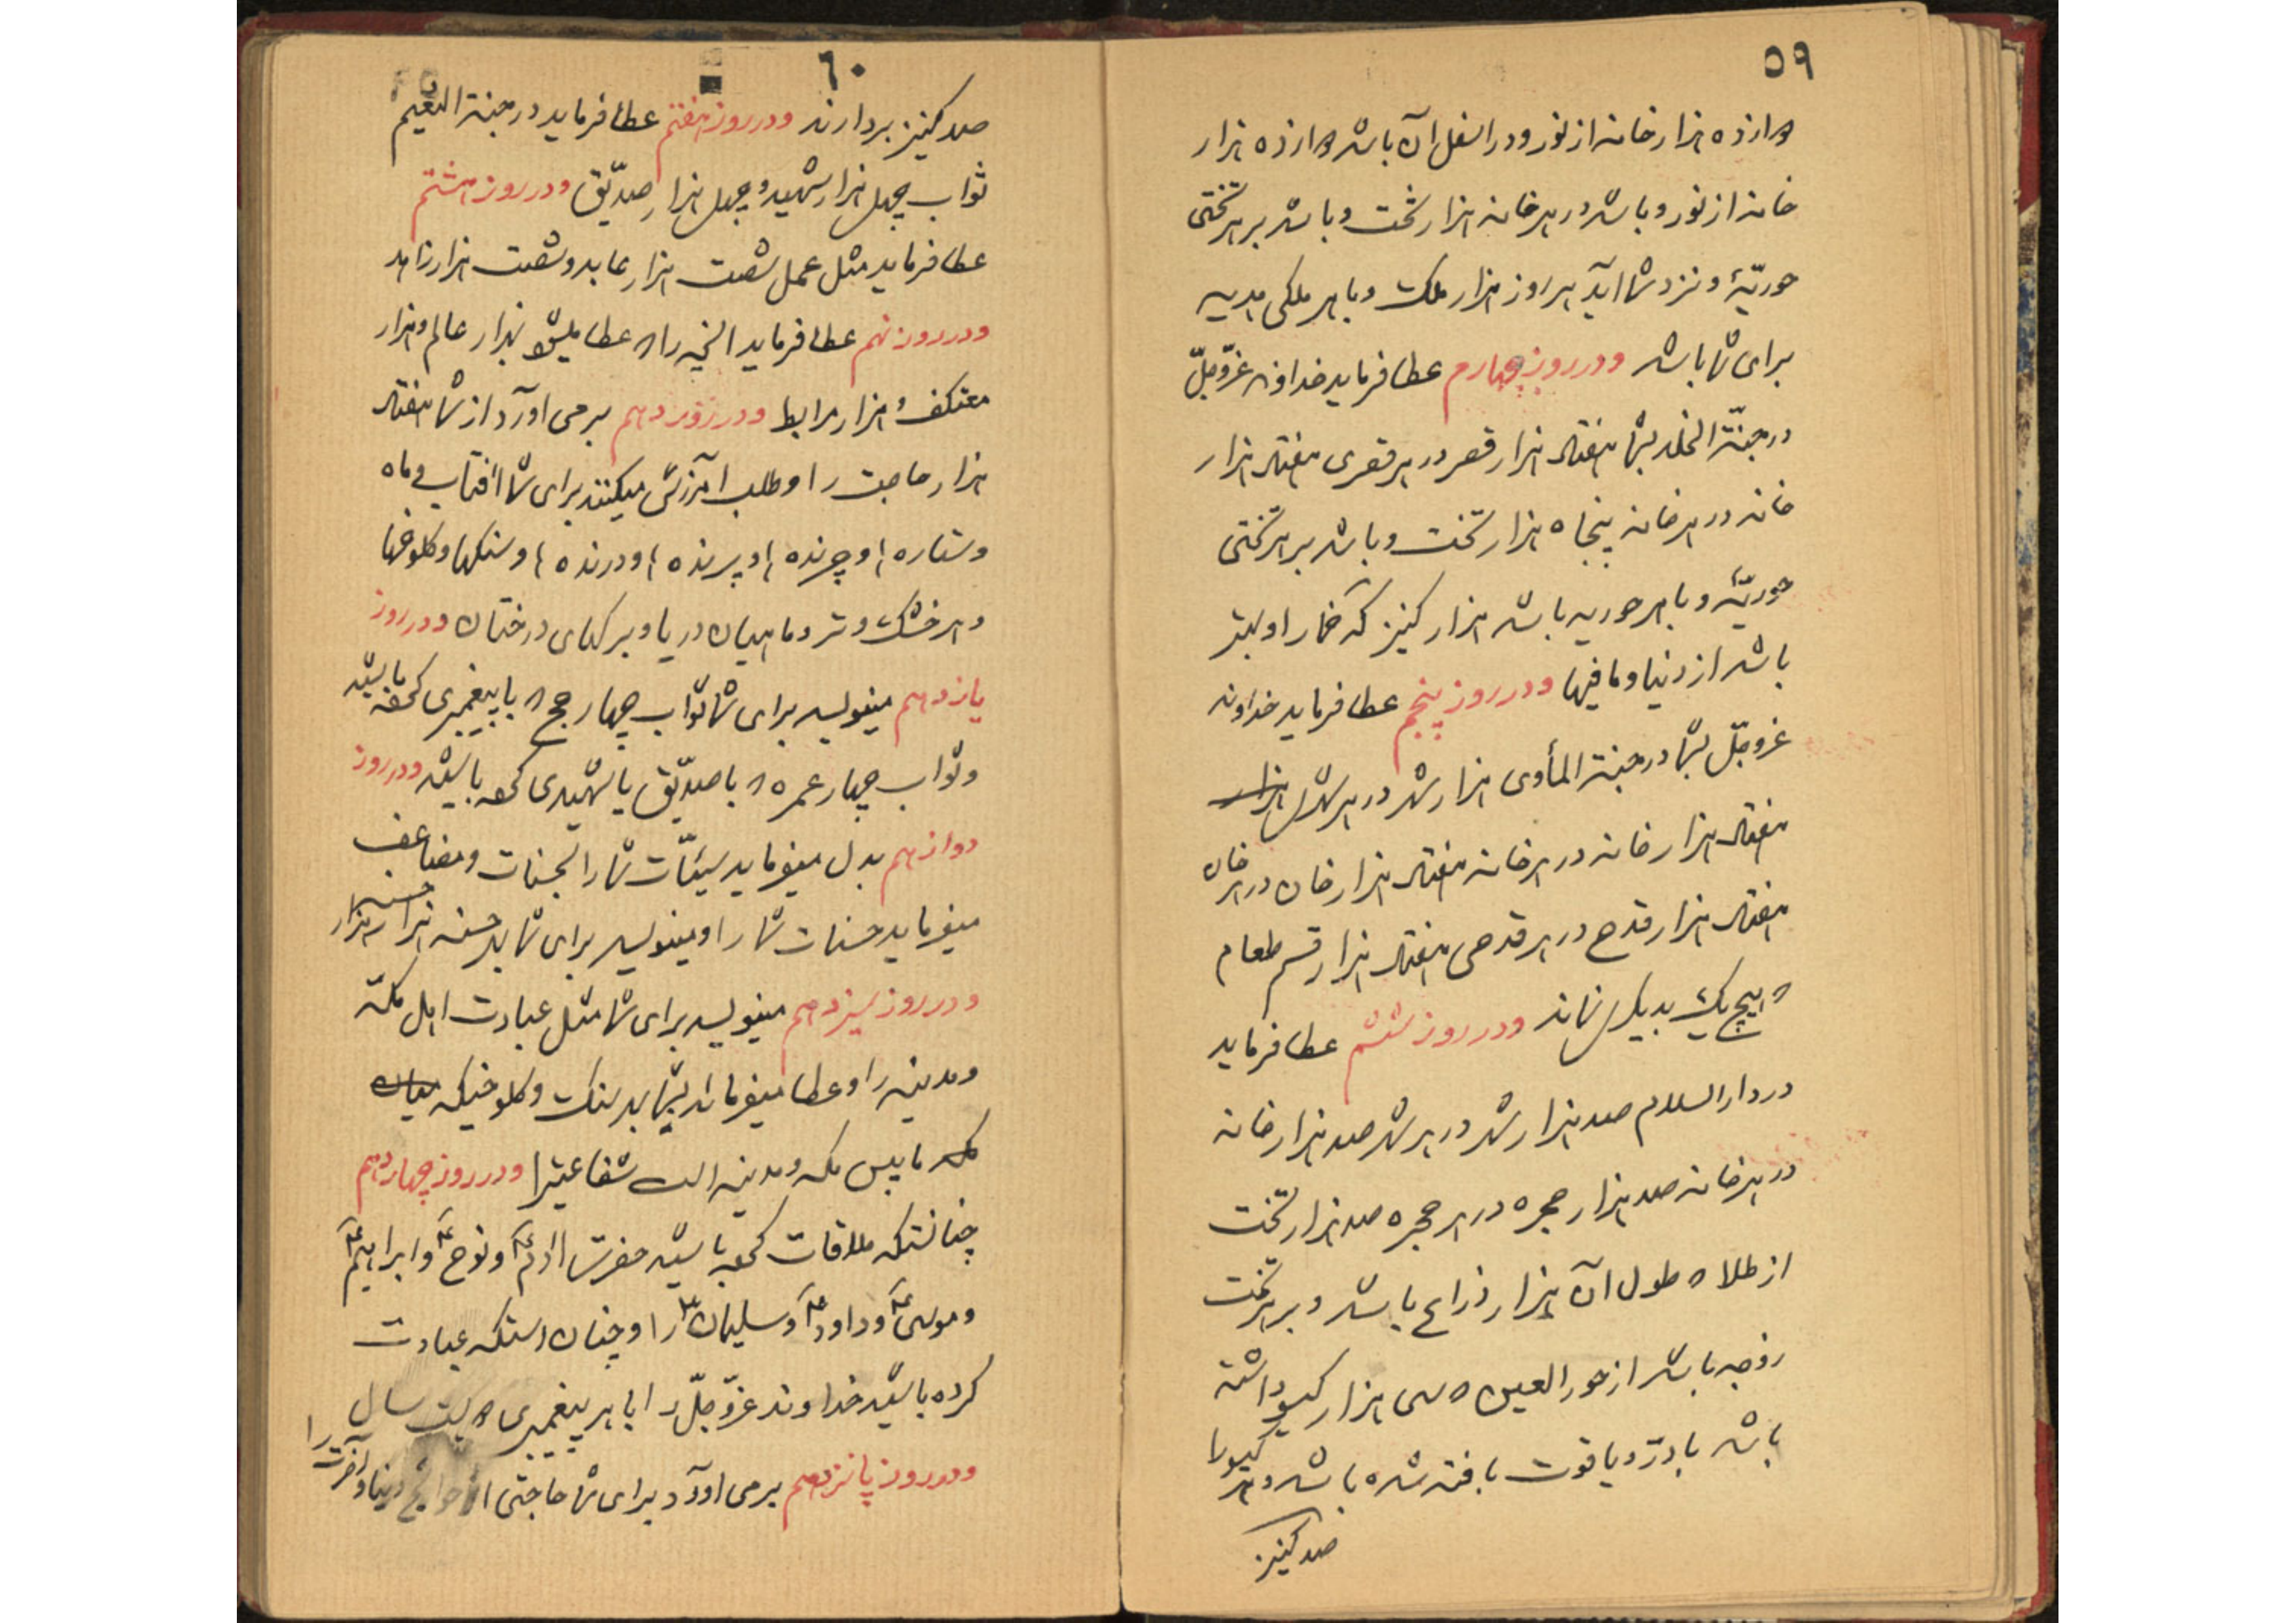 ۵۹
دوازده هزار خانه از نور و در اسفل آن باشد دوازده هزار
خانه از نور و باشد در هر خانه هزار تخت و باشد بر هر تختی
حوریّهٔ و نزد شما آید هر روز هزار ملک و با هر ملکی هدیه
برای شما باشد و در روز چهارم عطا فرماید خداوند عزّ وجلّ
در جنّة الخلد بشما هفتاد هزار قصر در هر قصری هفتاد هزار
خانه در هر خانه پنجاه هزار تخت و باشد بر هر تختی
حوریّهٔ و با هر حوریه باشد هزار کنیز که خمار او بهتر
باشد از دنیا و ما فیها و در روز پنجم عطا فرماید خداوند
عزوجلّ بشما در جنة المأوی هزار شهر در هر شهری هزار
هفتاد هزار خانه در هر خانه هفتاد هزار خوان در هر خوان
هفتاد هزار قدح در هر قدحی هفتاد هزار قسم طعام
که هیچ یک بدیگری نماند و در روز ششم عطا فرماید
در دار السلام صد هزار شهر در هر شهر صد هزار خانه
در هر خانه صد هزار حجره در هر حجره صد هزار تخت
از طلا که طول آن هزار ذراع باشد و بر هر تخت
زوجه باشد از حور العین که سی هزار گیسو داشته
باشد با درّ و یاقوت بافته شده باشد و هر گیسو را
صد کنیز
۶۰
صد کنیز بردارند و در روز هفتم عطا فرماید در جنة النعیم
ثواب چهل هزار شهید و چهل هزار صدّیق و در روز هشتم
عطا فرماید مثل عمل شصت هزار عابد و شصت هزار زاهد
و در روز نهم عطا فرماید آنچه را که عطا میشود بهزار عالم و هزار
معتکف و هزار مرابط و در روز دهم برمی آورد از شما هفتاد
هزار حاجت را و طلب آمرزش میکنند برای شما آفتاب و ماه
و ستاره ها و چرنده ها و پرنده ها و درنده ها و سنگها و کلوخها
و هر خشک و تر و ماهیان دریا و برگهای درختان و در روز
یازدهم مینویسد برای شما ثواب چهار حج که با پیغمبری کرده باشید
و ثواب چهار عمره که با صدّیق یا شهیدی کرده باشید و در روز
دوازدهم بدل میفرماید سیّئات شما را بحسنات و مضاعف
میفرماید حسنات شما را و مینویسد برای شما بهر حسنه هزار هزار حسنه
و در روز سیزدهم مینویسد برای شما مثل عبادت اهل مکّه
و مدینه را و عطا میفرماید بشما بهر سنگ و کلوخیکه میان
که مابین مکه و مدینه است شفاعتیرا و در روز چهاردهم
چنانستکه ملاقات کرده باشید حضرت آدم ع و نوح ع و ابراهیم ع
و موسی ع و داود ع و سلیمان ع را و چنان استکه عبادت
کرده باشید خداوند عزّ وجلّ را با هر پیغمبری دویست سال
و در روز پانزدهم برمی آورد برای شما حاجتی از حوائج دنیا و آخرت را